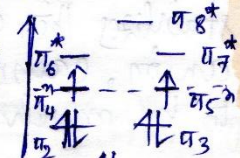 π8*
π6* π7*
π4 n π5 n
π2 π3